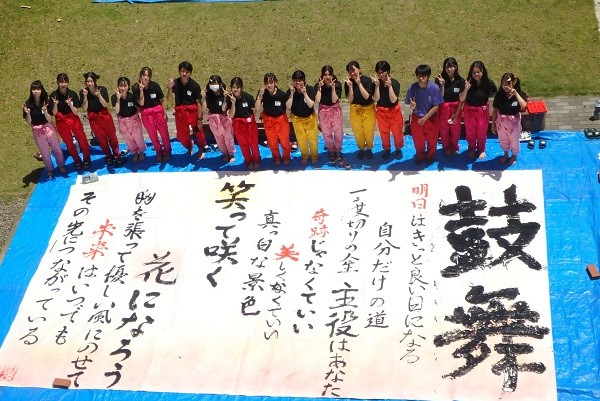 鼓舞
明日はきっと良い日になる
自分だけの道
一度切りの今主役はあなた
奇跡じゃなくていい
美しくなくていい
真っ白な景色
笑って咲く
花になろう
胸を張って優しい風にのせて
未来はいつでも
その先につながっている